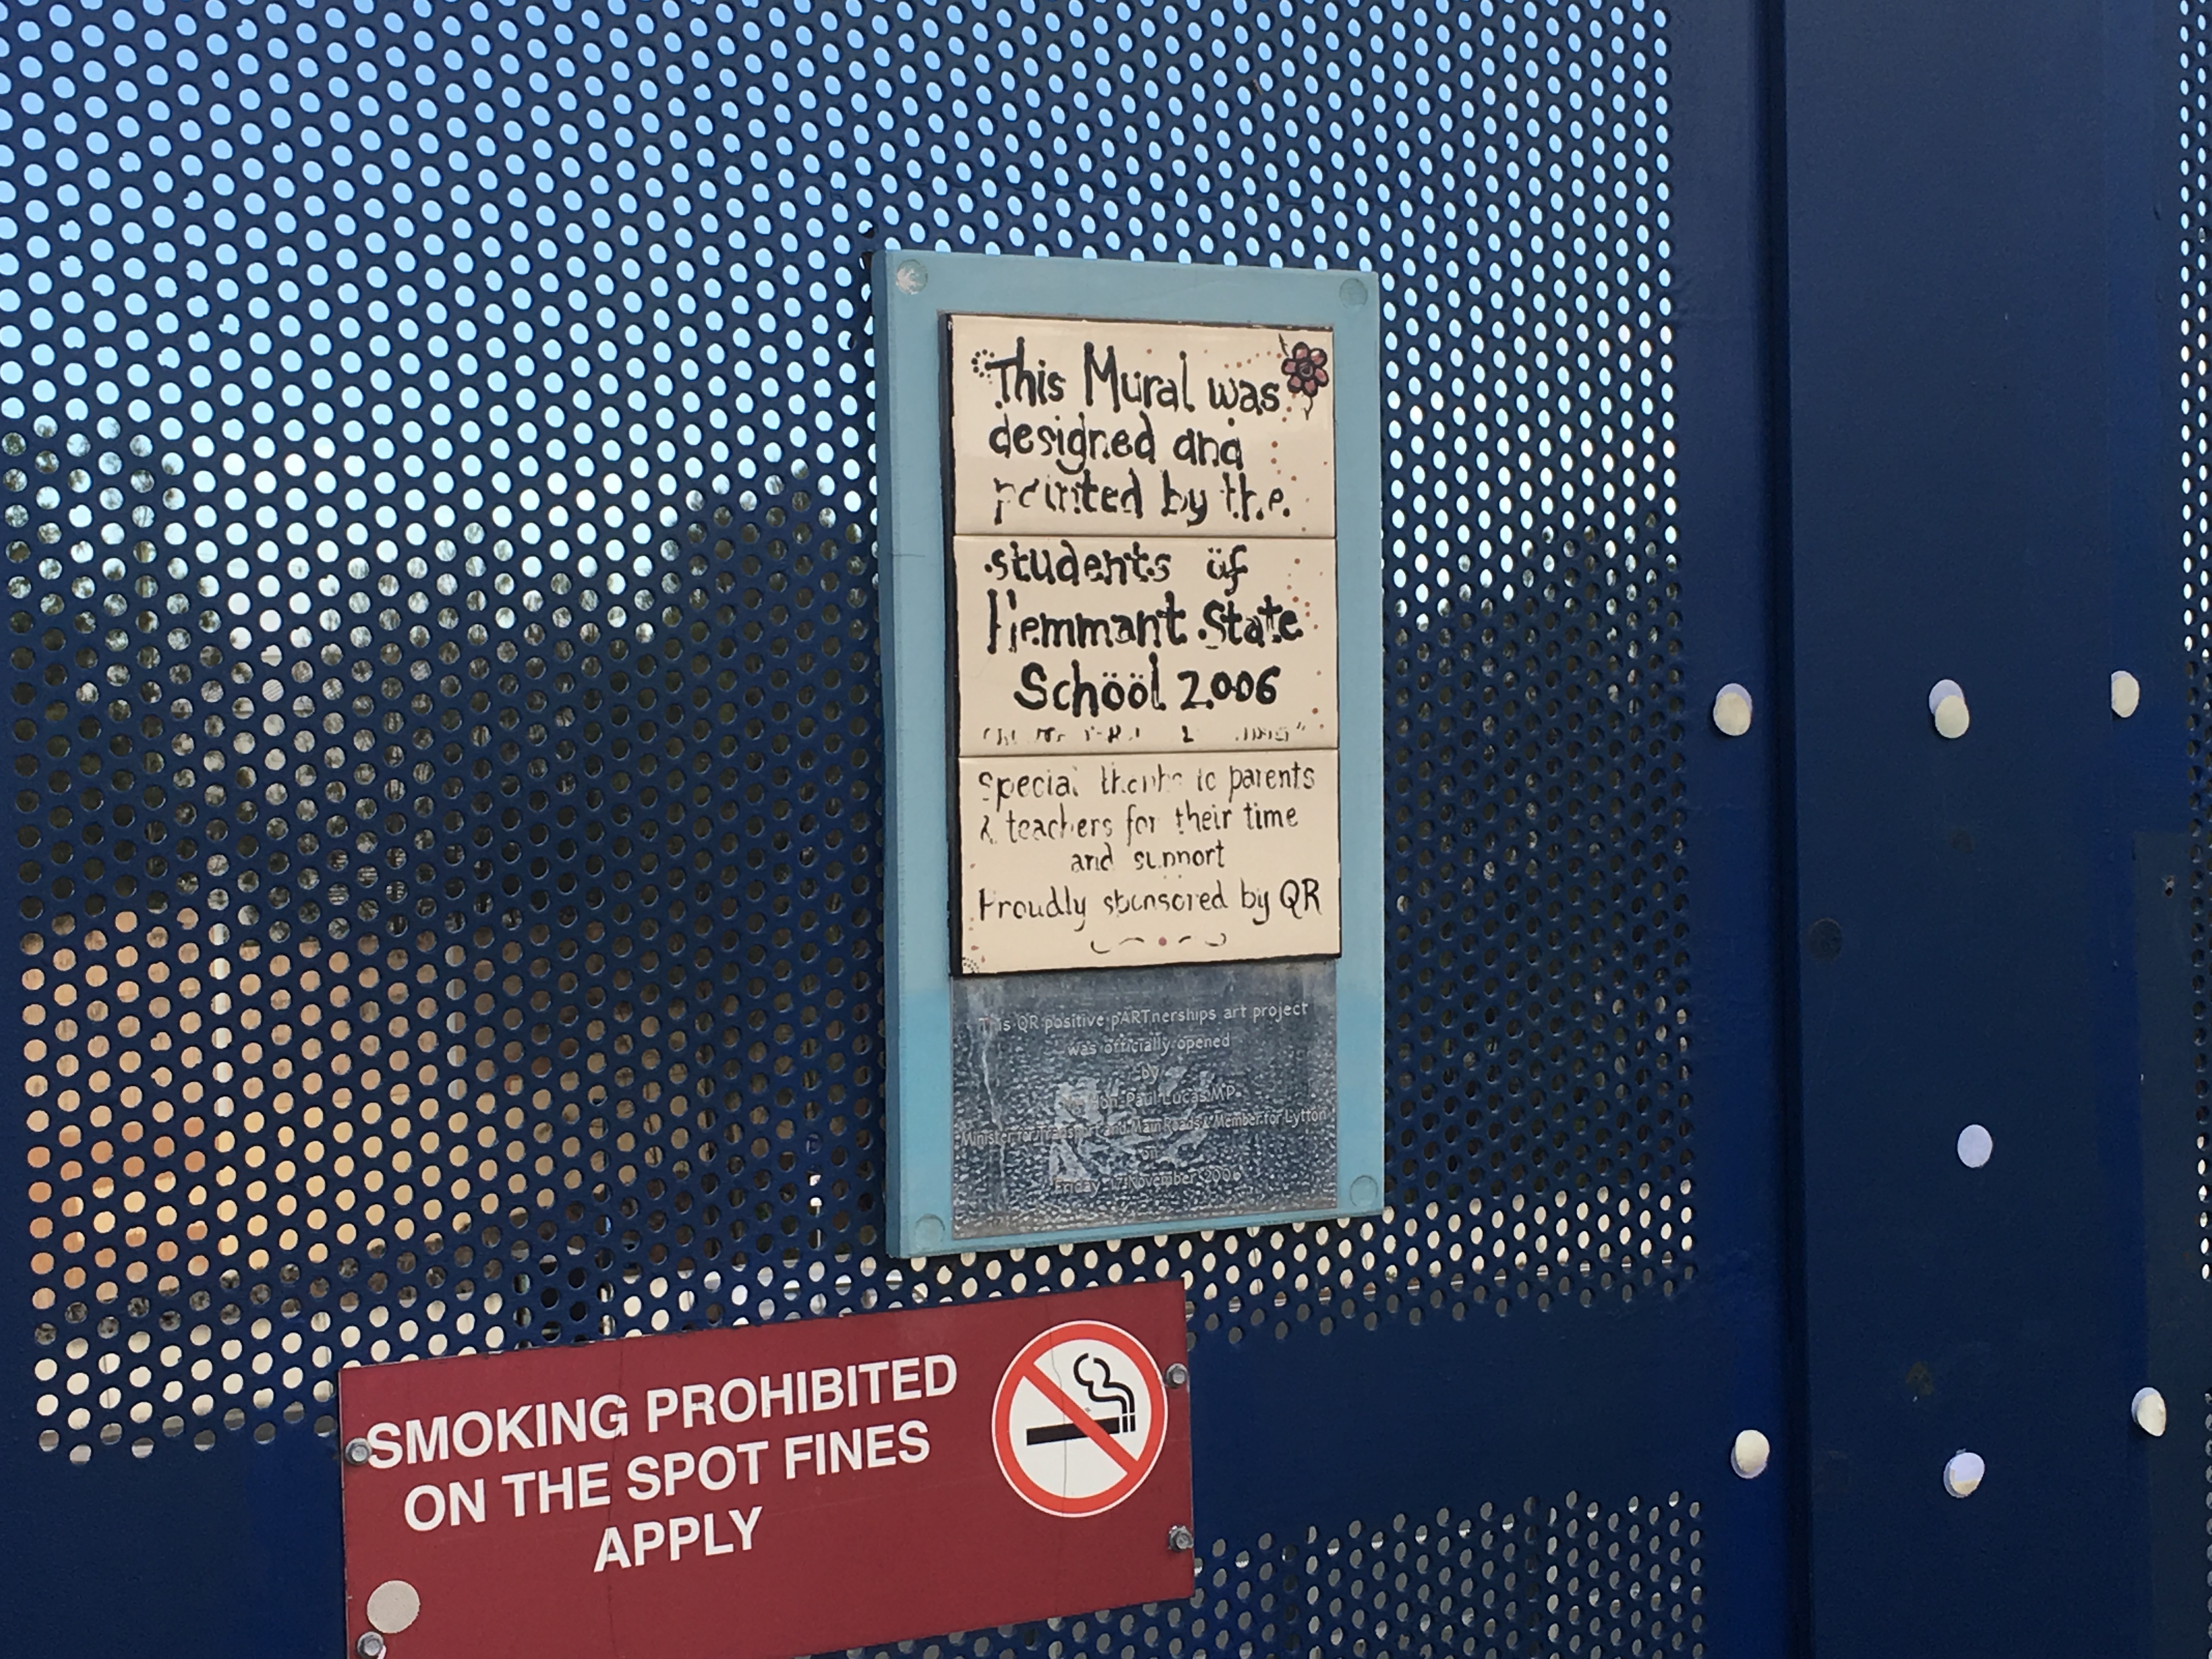 This Mural was
designed and
painted by the
students of
Hemmant State
School 2006
Special thanks to parents
& teachers for their time
and support
Proudly sponsored by QR
This QR positive pARTnerships art project
was officially opened
by
Hon. Paul Lucas MP
Minister for Transport and Main Roads & Member for Lytton
on
Friday 17 November 2006
SMOKING PROHIBITED
ON THE SPOT FINES
APPLY